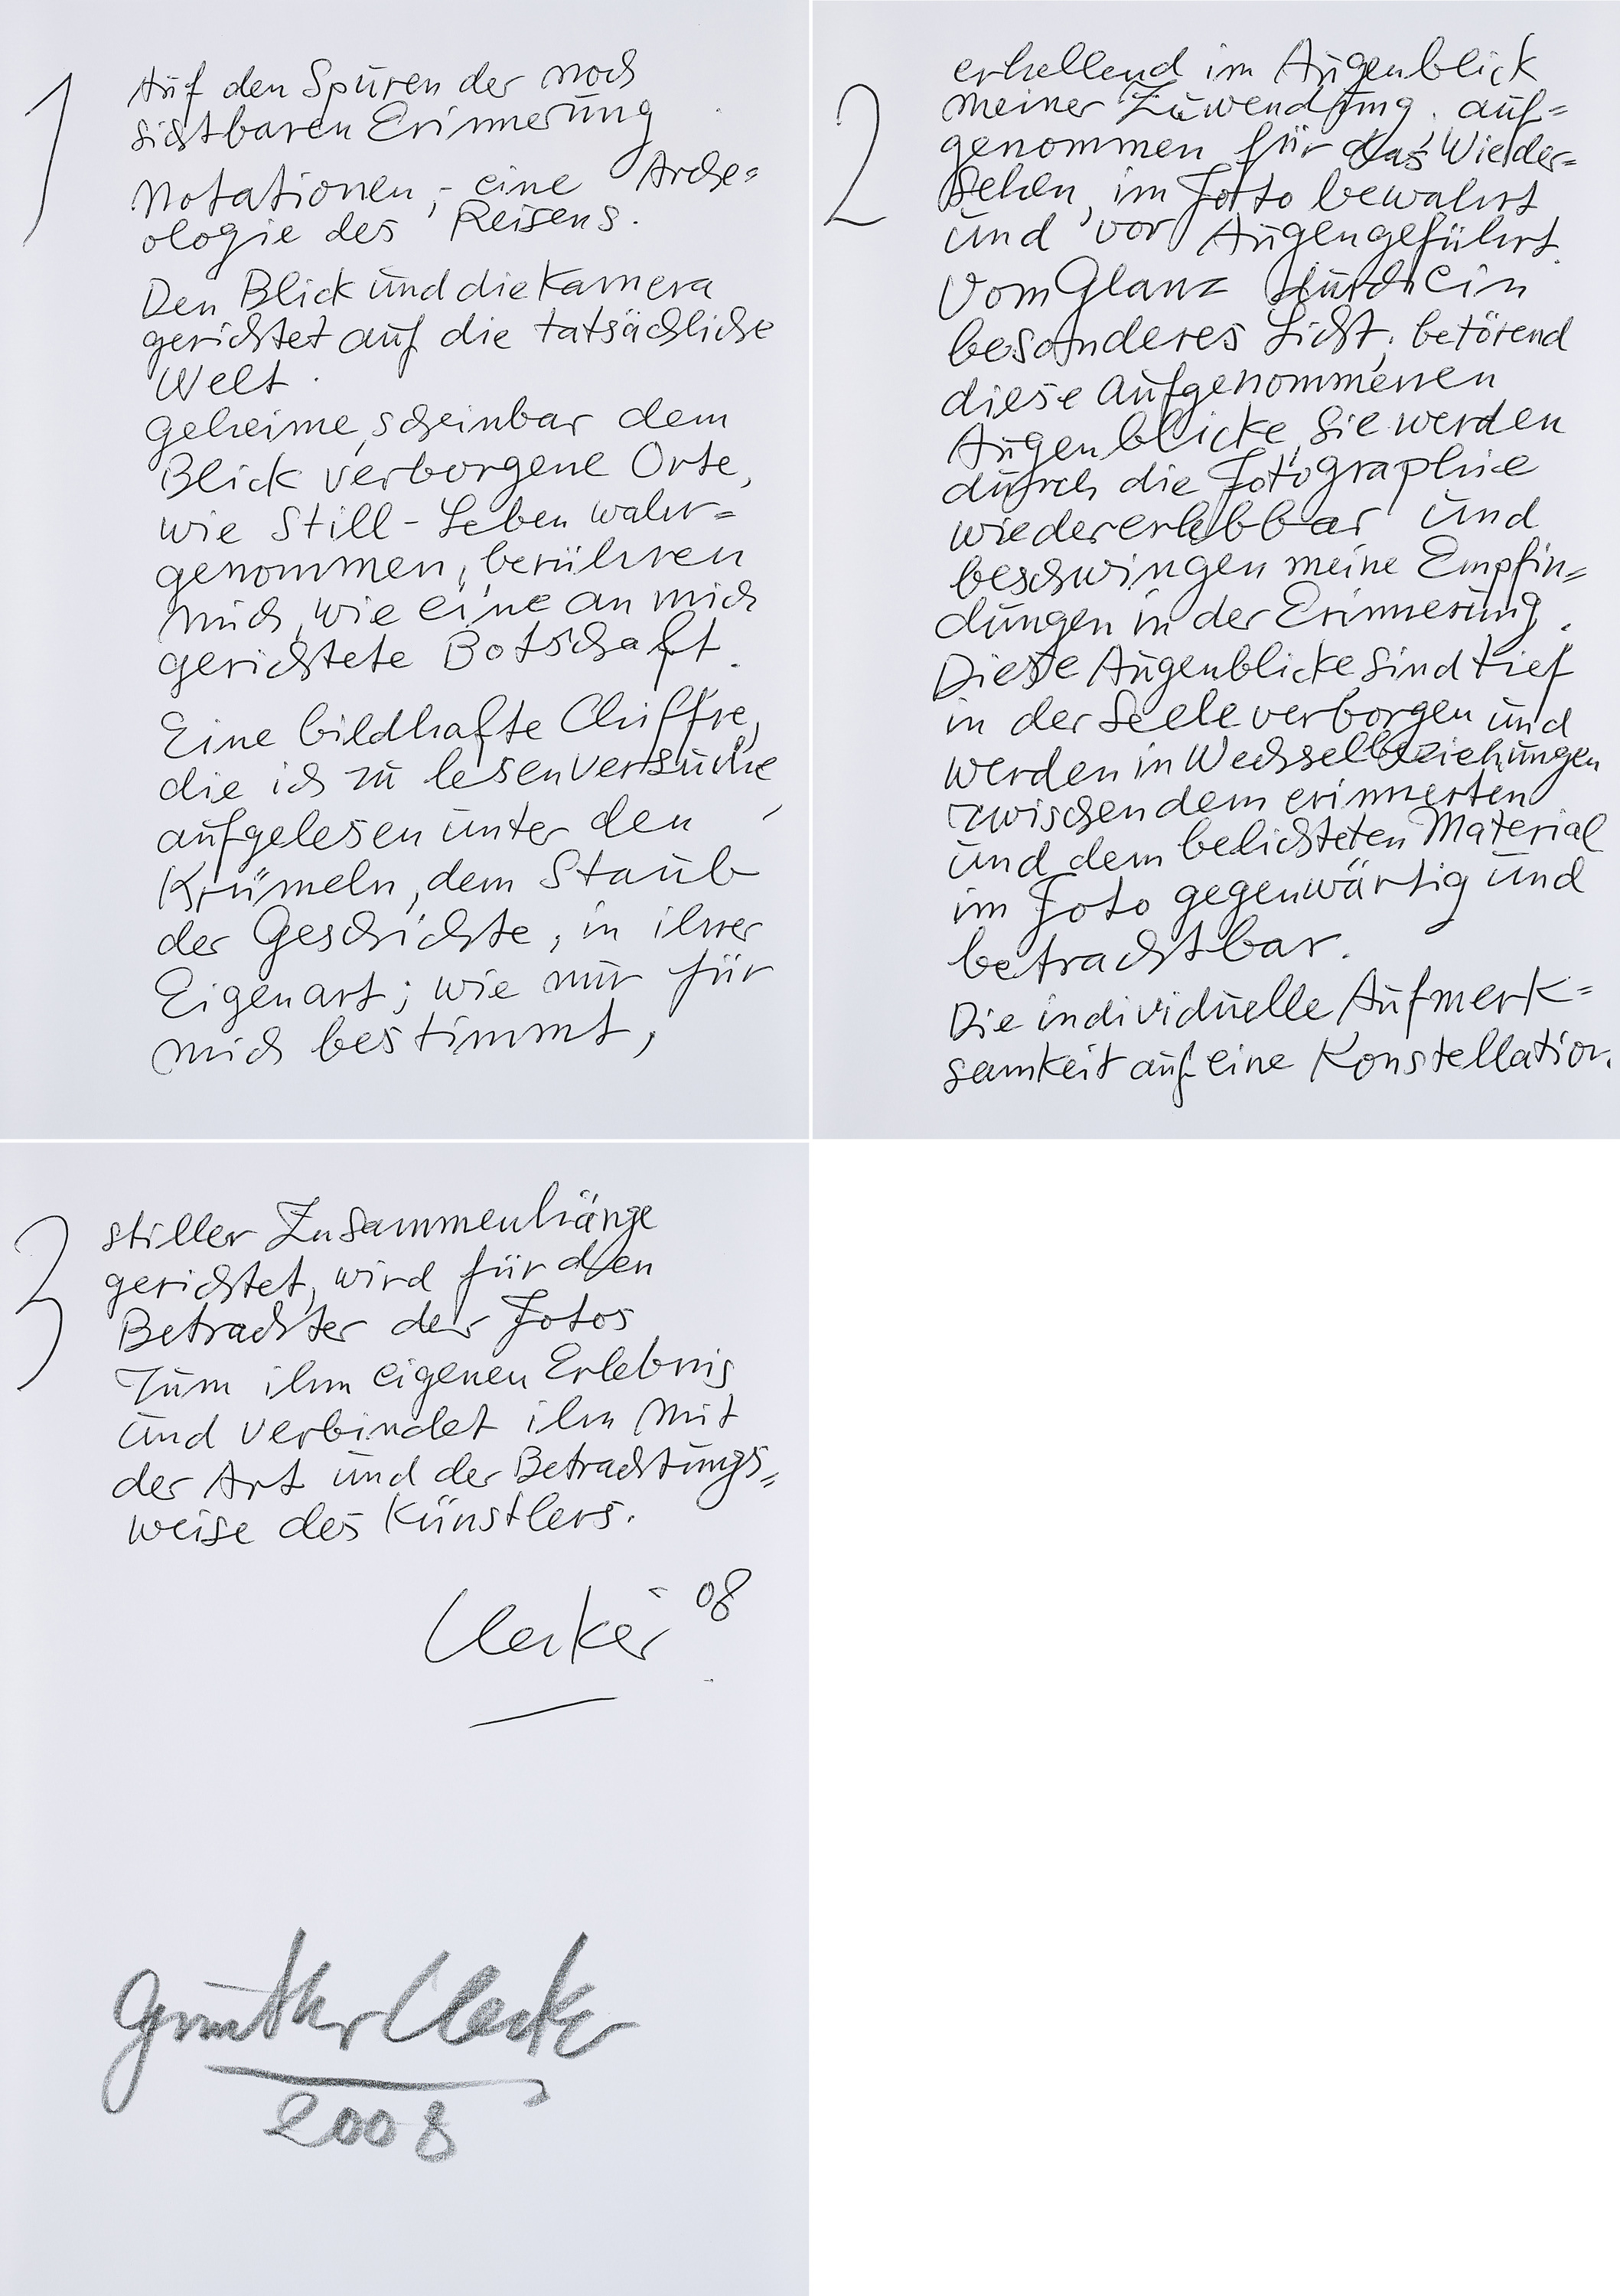 1
Auf den Spuren der noch
sichtbaren Erinnerung
Notationen, - eine Arche=
ologie des Reisens.
Den Blick und die Kamera
gerichtet auf die tatsächliche
Welt.
Geheime, scheinbar dem
Blick verborgene Orte,
wie Still-Leben wahr=
genommen, berühren
mich, wie eine an mich
gerichtete Botschaft.
Eine bildhafte Chiffre,
die ich zu lesen versuche,
aufgelesen unter den
Krümeln, dem Staub
der Geschichte, in ihrer
Eigenart; wie nur für
mich bestimmt,
2
erhellend im Augenblick
meiner Zuwendung. auf=
genommen für das Wieder=
sehen, im Foto bewahrt
und vor Augengeführt.
Vom Glanz durch ein
besonderes Licht, betörend
diese aufgenommenen
Augenblicke, sie werden
durch die Fotographie
wiedererlebbar und
beschwingen meine Empfin=
dungen in der Erinnerung.
Diese Augenblicke sind tief
in der Seele verborgen und
werden in Wechselbeziehungen
zwischen dem erinnerten
und dem belichteten Material
im Foto gegenwärtig und
betrachtbar.
Die individuelle Aufmerk=
samkeit auf eine Konstellation
3
stiller Zusammenhänge
gerichtet, wird für den
Betrachter der Fotos
zum ihm eigenen Erlebnis
und verbindet ihn mit
der Art und der Betrachtungs=
weise des Künstlers.
Uecker 08
Günther Uecker
2008